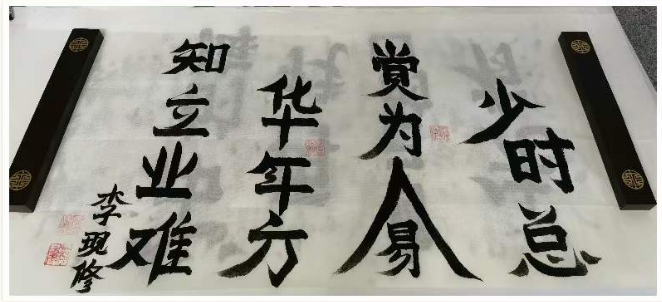 少时总
赏为人易
华年方
知立业难
李现修